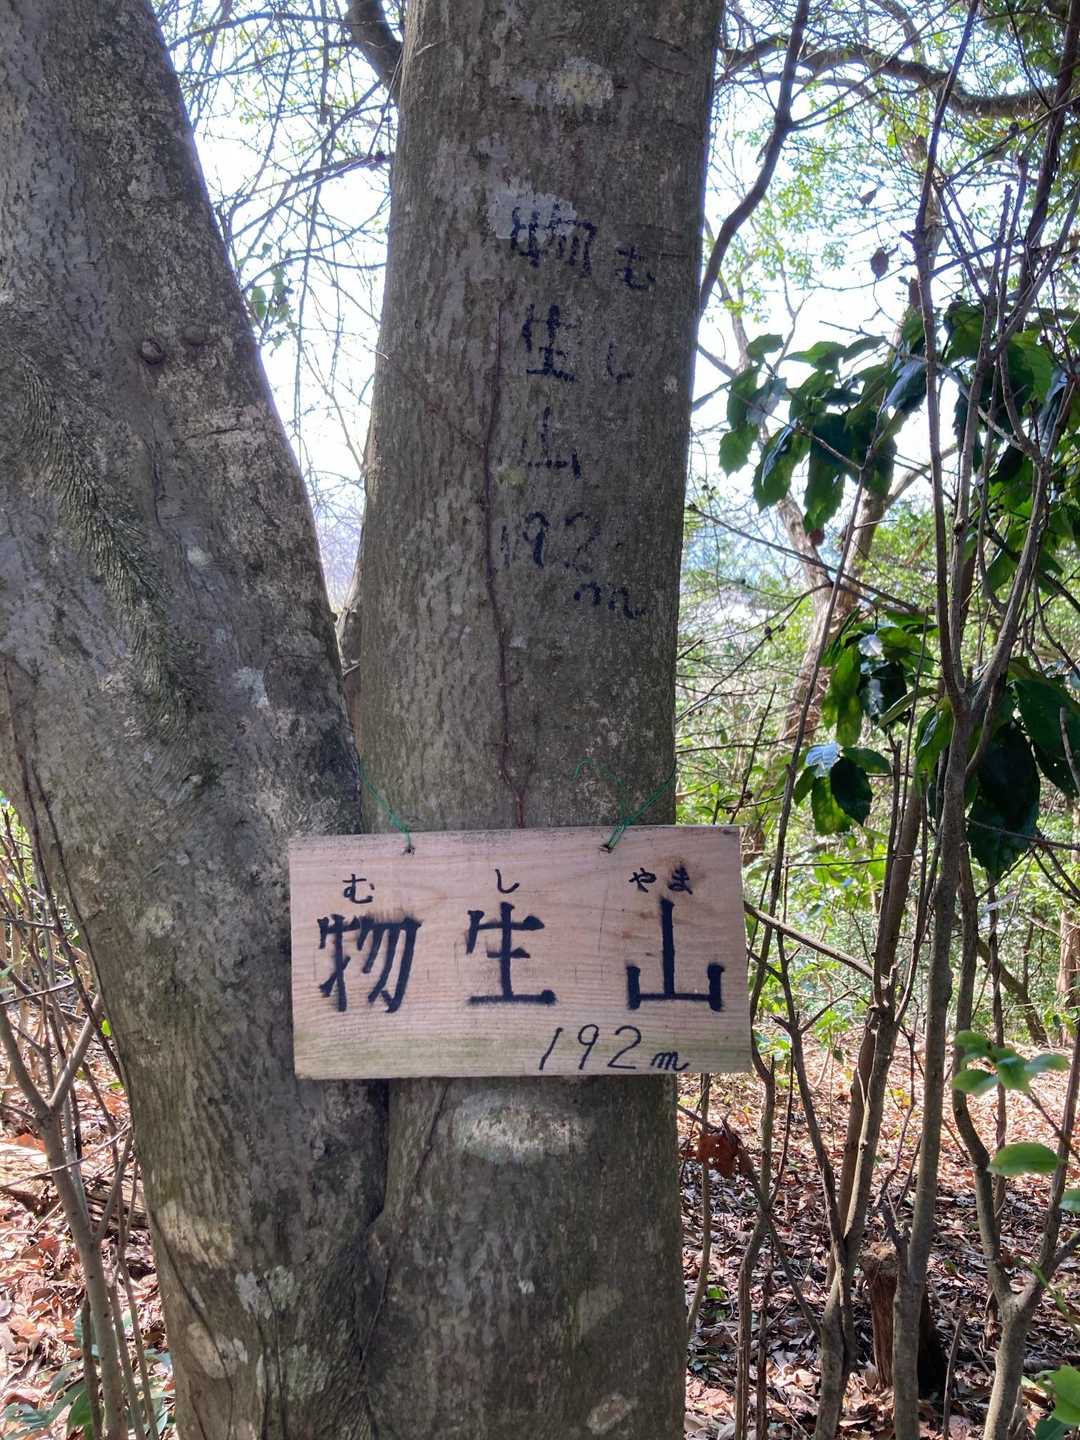 物生山
むし
192
m
む し やま
物生山
192m